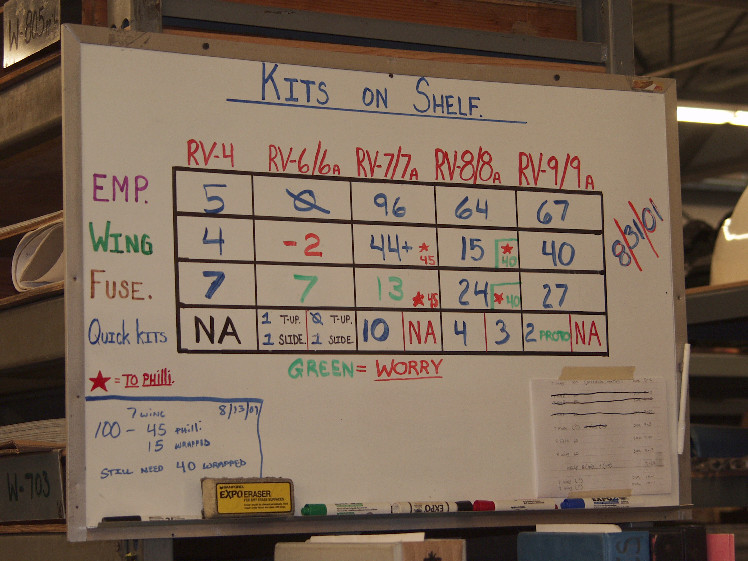 W-805
KITS ON SHELF.
RV-4 RV-6/6A RV-7/7A RV-8/8A RV-9/9A
EMP. 5 0 96 64 67
WING 4 -2 44+ ★45 15 ★40 40
FUSE. 7 7 13 ★45 24 ★40 27
QUICK KITS NA 1 T-UP. 0 T-UP. 10 NA 4 3 2 PROTO NA
1 SLIDE. 1 SLIDE.
8/31/01
GREEN = WORRY
★ = TO PHILLI.
7 WING 8/13/01
100 - 45 PHILLI
15 WRAPPED
STILL NEED 40 WRAPPED
W-703
EXPO ERASER
EXPO